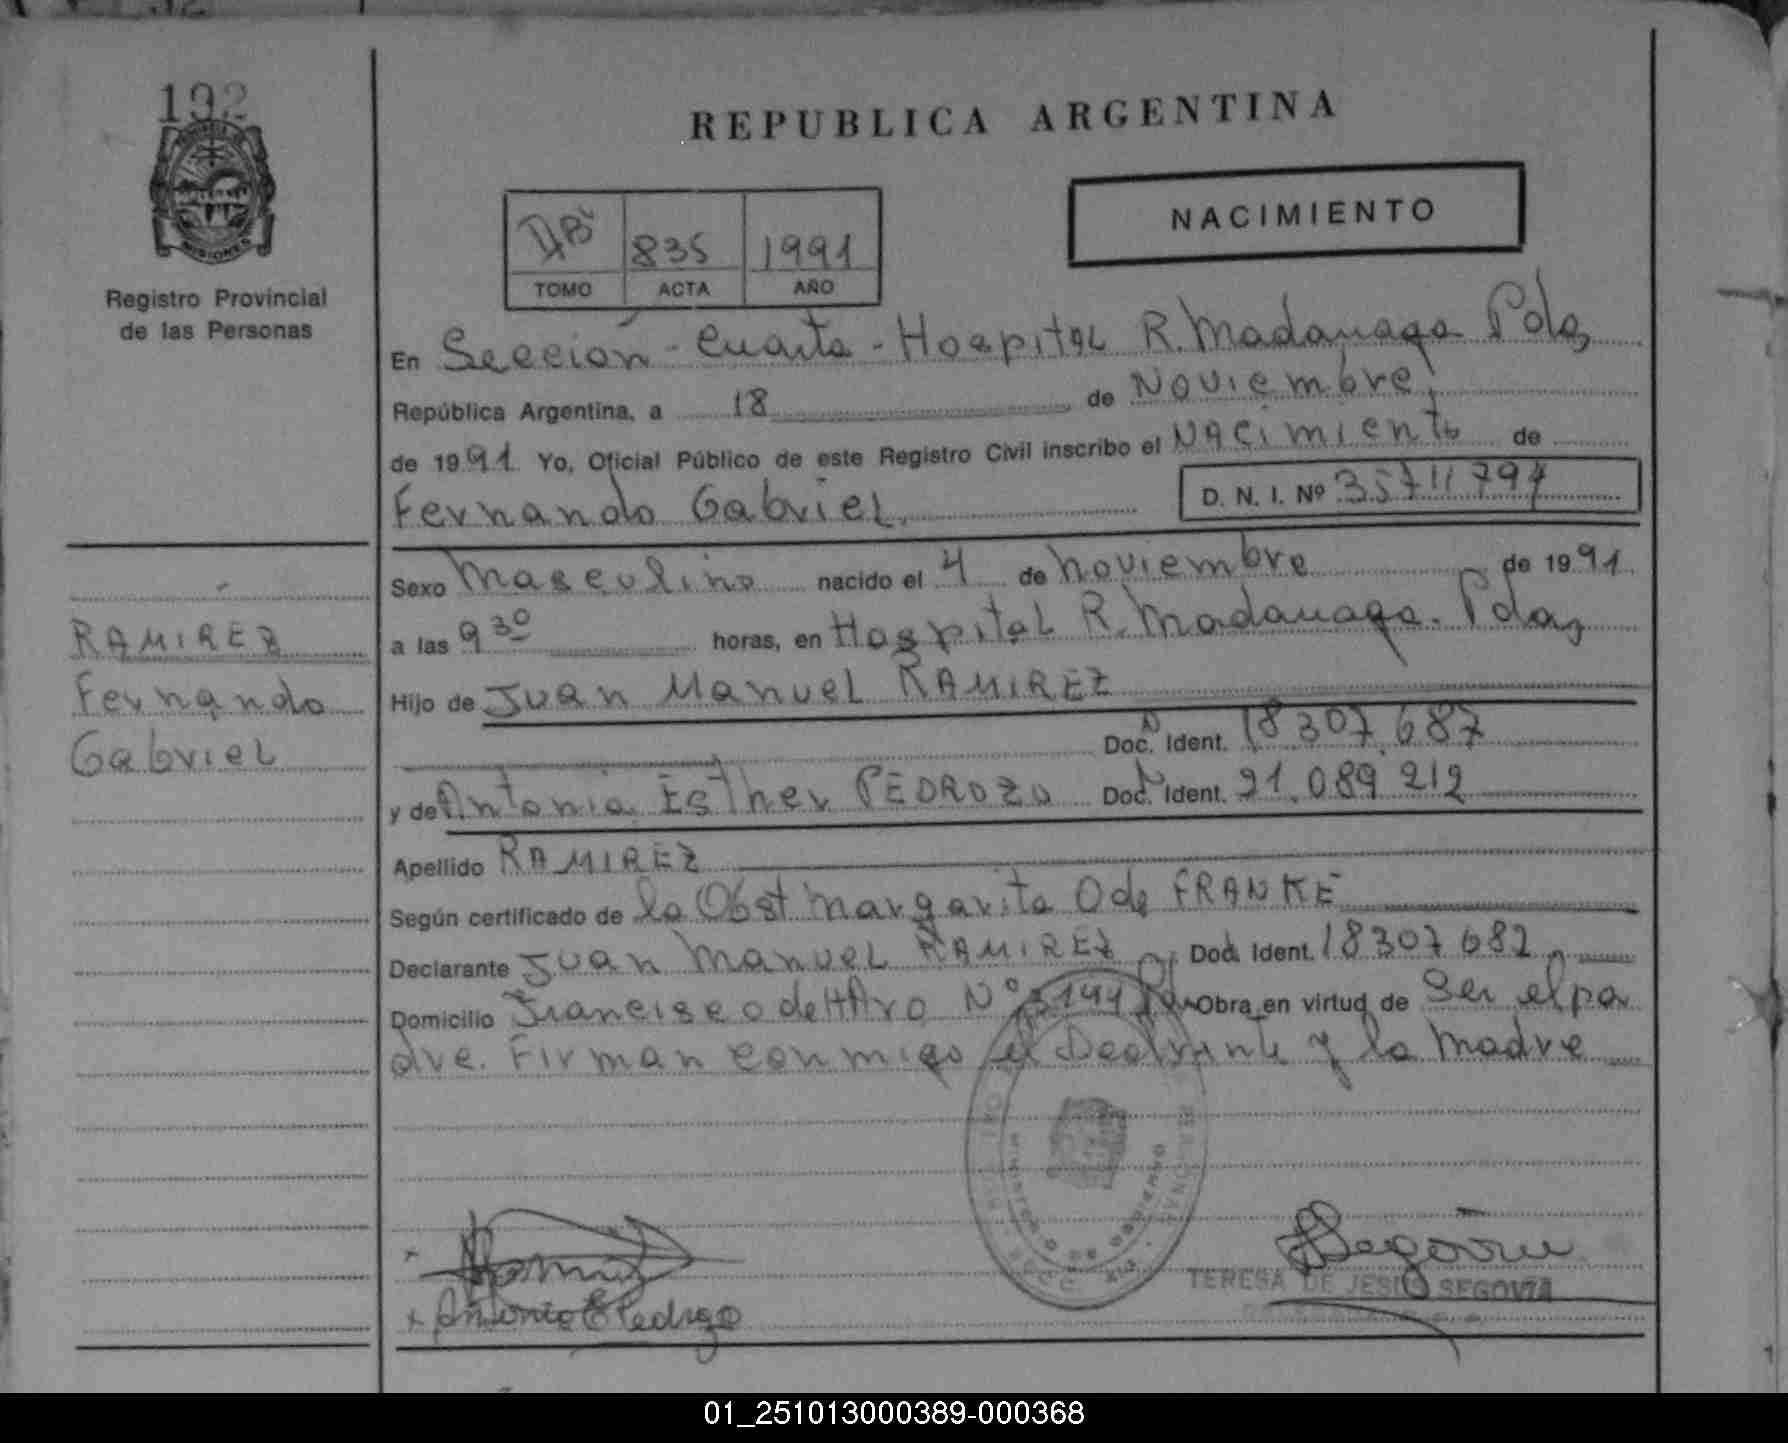 192
MISIONES
Registro Provincial
de las Personas
REPUBLICA ARGENTINA
NACIMIENTO
835 1991
TOMO ACTA AÑO
En Sección - Cuarta - Hospital R. Madariaga Pdas
República Argentina, a 18 de Noviembre
de 1991 Yo, Oficial Público de este Registro Civil inscribo el NACimiento de
Fernando Gabriel
D. N. I. Nº 35711794
Sexo Masculino nacido el 4 de noviembre de 1991
a las 9 30 horas, en Hospital R. Madariaga. Pdas
Hijo de Juan Manuel RAMIREZ
Doc. Ident. 18 307.687
y de Antonia Esther PEDROZO Doc. Ident. 21.089 212
Apellido RAMIREZ
Según certificado de la Obst Margarita O de FRANKE
Declarante Juan Manuel RAMIREZ Doc. Ident. 18307682
Domicilio Francisco de HAro Nº Obra en virtud de Ser el pa
dre. Firman conmigo el Declarante y la Madre
RAMIREZ
Fernando
Gabriel
MINISTERIO DE GOBIERNO
x
x Antonia E Pedrozo
Segovia
TERESA DE JESUS SEGOVIA
01_251013000389-000368